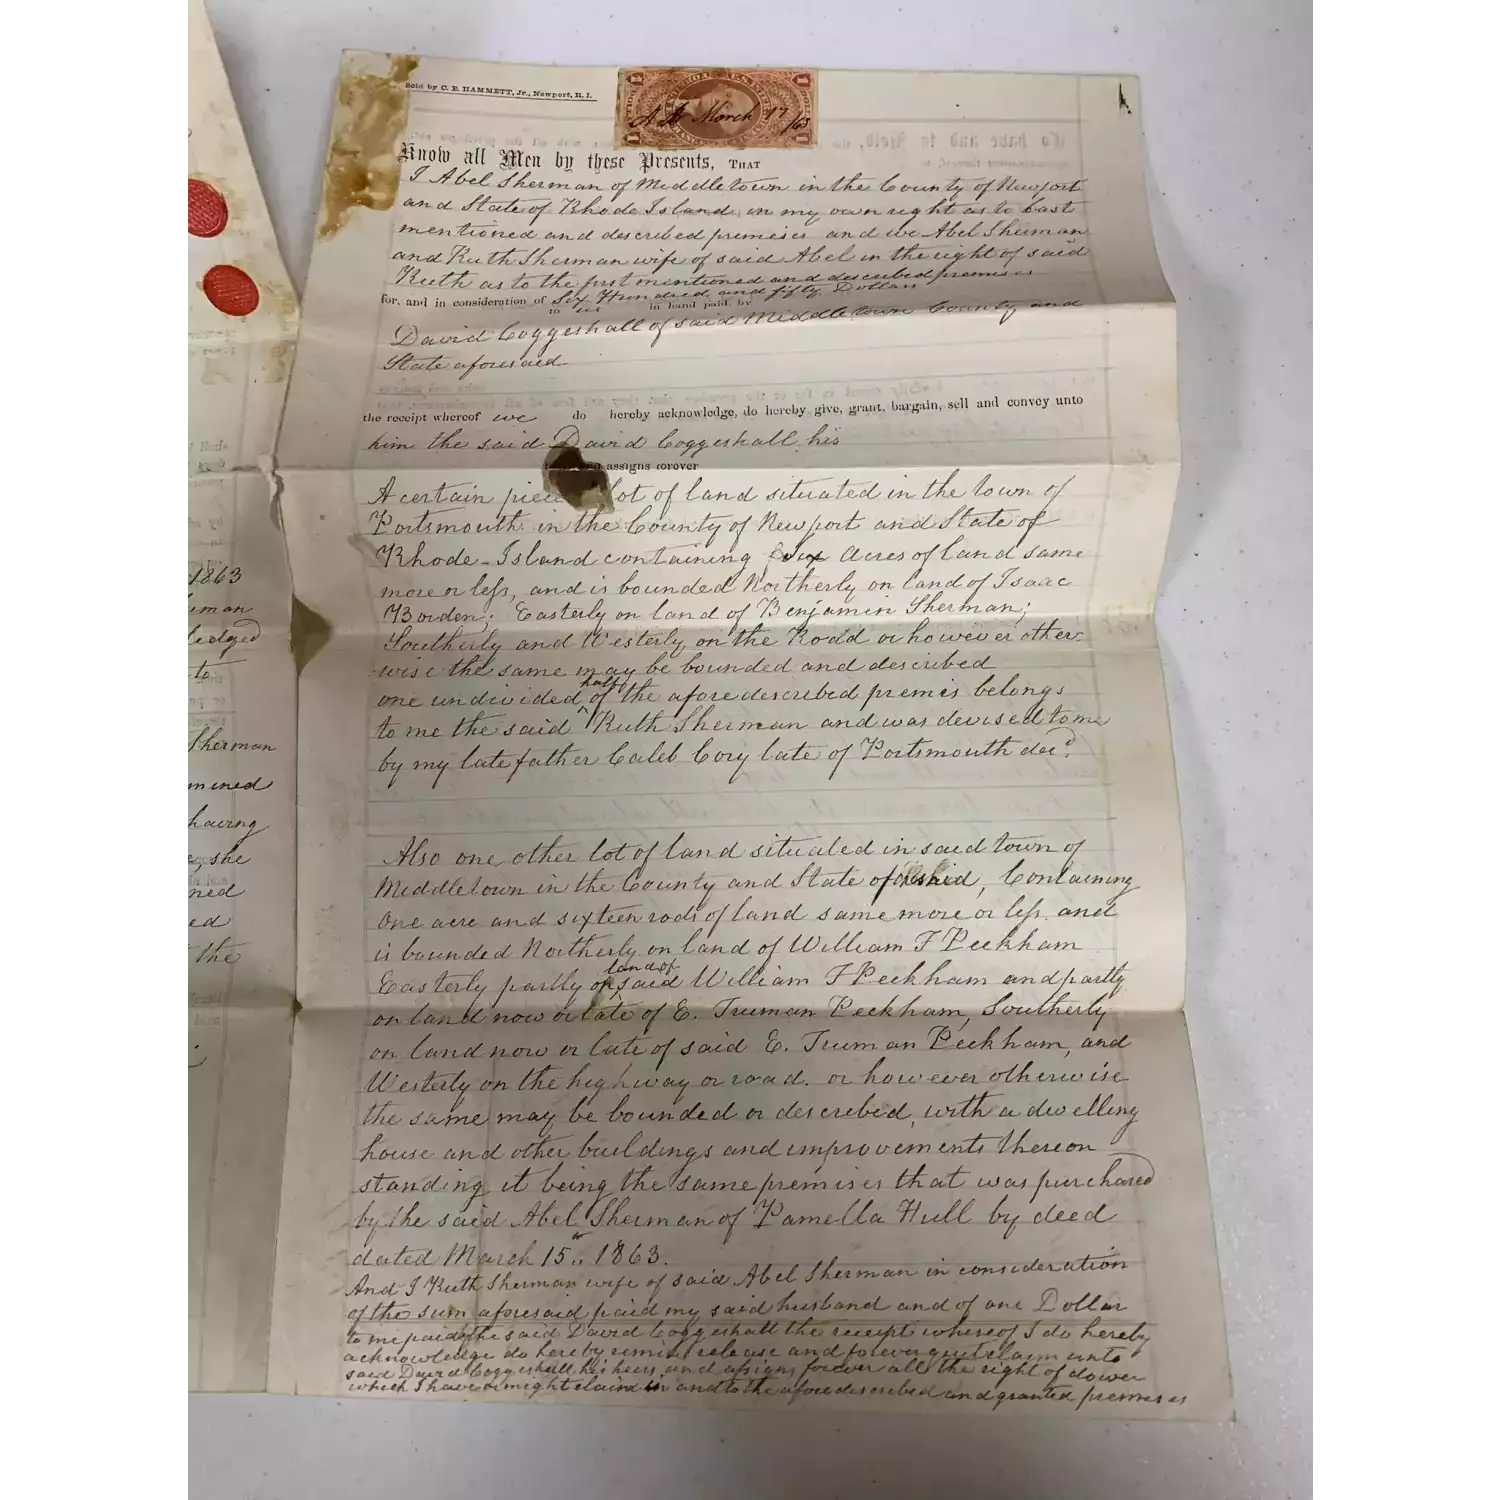 Sold by C. E. HAMMETT, Jr., Newport, R. I.
A S March 17 /63
Know all Men by these Presents, THAT
I Abel Sherman of Middletown in the County of Newport
and State of Rhode Island, in my own right as to last
mentioned and described premises and we Abel Sherman
and Ruth Sherman wife of said Abel in the right of said
Ruth as to the first mentioned and described premises
for, and in consideration of Six Hundred and fifty Dollars
to us in hand paid by
David Coggeshall of said Middletown County and
State aforesaid
the receipt whereof we do hereby acknowledge, do hereby give, grant, bargain, sell and convey unto
him the said David Coggeshall his
assigns forever
A certain piece lot of land situated in the town of
Portsmouth in the County of Newport and State of
Rhode-Island containing Six Acres of land same
more or less, and is bounded Northerly on land of Isaac
Borden; Easterly on land of Benjamin Sherman;
Southerly and Westerly on the Rodd or however other-
wise the same may be bounded and described
one undivided half of the afore described premis belongs
to me the said Ruth Sherman and was devised to me
by my late father Caleb Cory late of Portsmouth decd.
Also one other lot of land situated in said town of
Middletown in the County and State aforesaid, Containing
One acre and sixteen rods of land same more or less and
is bounded Northerly on land of William F Peckham
Easterly partly on land of said William F Peckham and partly
on land now or late of E. Truman Peckham, Southerly
on land now or late of said E. Truman Peckham, and
Westerly on the highway or road. or however otherwise
the same may be bounded or described, with a dwelling
house and other buildings and improvements thereon
standing it being the same premises that was purchased
by the said Abel Sherman of Pamella Hull by deed
dated March 15th 1863.
And I Ruth Sherman wife of said Abel Sherman in consideration
of the sum aforesaid paid my said husband and of one Dollar
to me paid by the said David Coggeshall the receipt whereof I do hereby
acknowledge do hereby remise release and forever quit claim unto
said David Coggeshall his heirs and assigns forever all the right of dower
which I have or might claim in and to the afore described and granted premises
1863
to
Sherman
having
she
the